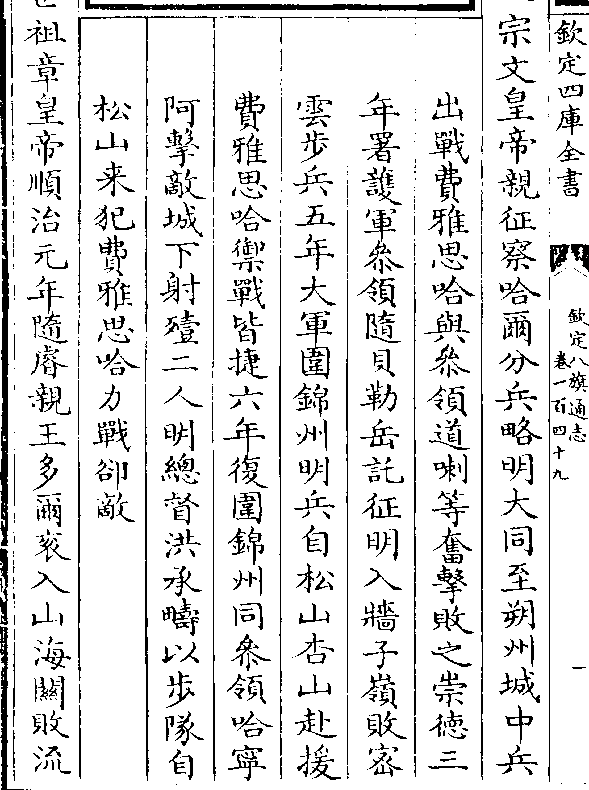 欽定四庫全書
欽定八旗通志
卷一百四十九
一
宗文皇帝親征察哈爾分兵略明大同至朔州城中兵
出戰費雅思哈與叅領道喇等奮擊敗之崇德三
年署護軍叅領隨貝勒岳託征明入牆子嶺敗密
雲步兵五年大軍圍錦州明兵自松山杏山赴援
費雅思哈禦戰皆捷六年復圍錦州同叅領哈寧
阿擊敵城下射殪二人明總督洪承疇以步隊自
松山来犯費雅思哈力戰卻敵
祖章皇帝順治元年隨睿親王多爾袞入山海關敗流